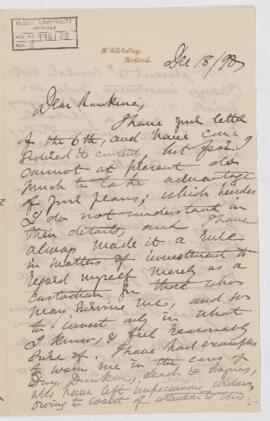 McGILL UNIVERSITY
ARCHIVES
ACC. NO.
REF.
McGill College,
Montreal.
Dec 18/90
Dear Rankine,
I have your letter
of the 6th, and have
but fear I
cannot at present do
much to take advantage
of your plans; which besides
I do not understand in
their details, and I have
always made it a rule
in matters of investment to
regard myself merely as a
custodian for that who
may survive me, and so
to invest only in what
I know, & feel reasonably
sure of. I have had examples
to warn me in the cases of
Drs,
who have left
owing to want of attention to this